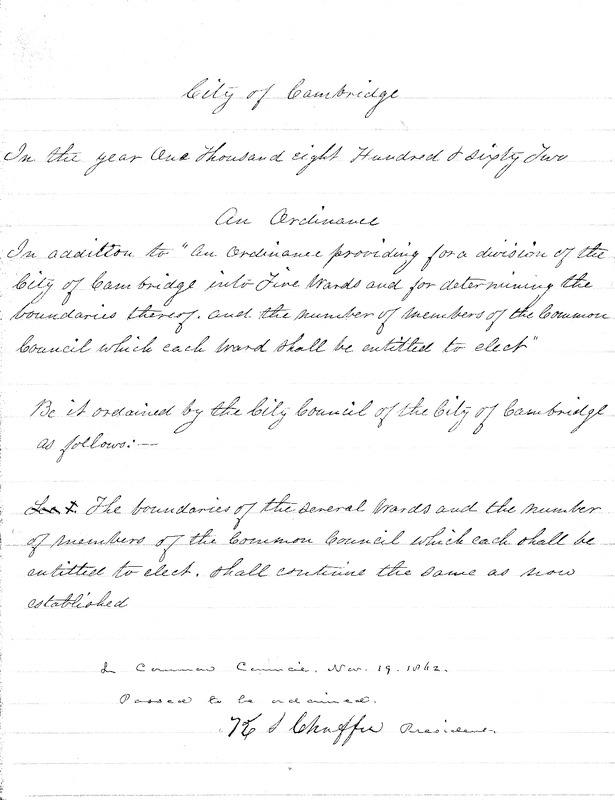 City of Cambridge
In the year One Thousand eight Hundred & Sixty Two
An Ordinance
In addition to "An Ordinance providing for a division of the
City of Cambridge into Five Wards and for determining the
boundaries thereof. and the number of members of the Common
Council which each Ward shall be entitled to elect"
Be it ordained by the City Council of the City of Cambridge
as follows:—
The boundaries of the several Wards and the number
of members of the Common Council which each shall be
entitled to elect. shall continue the same as now
established
In Common Council. Nov. 19. 1862.
Passed to be ordained.
S Chaffee President.